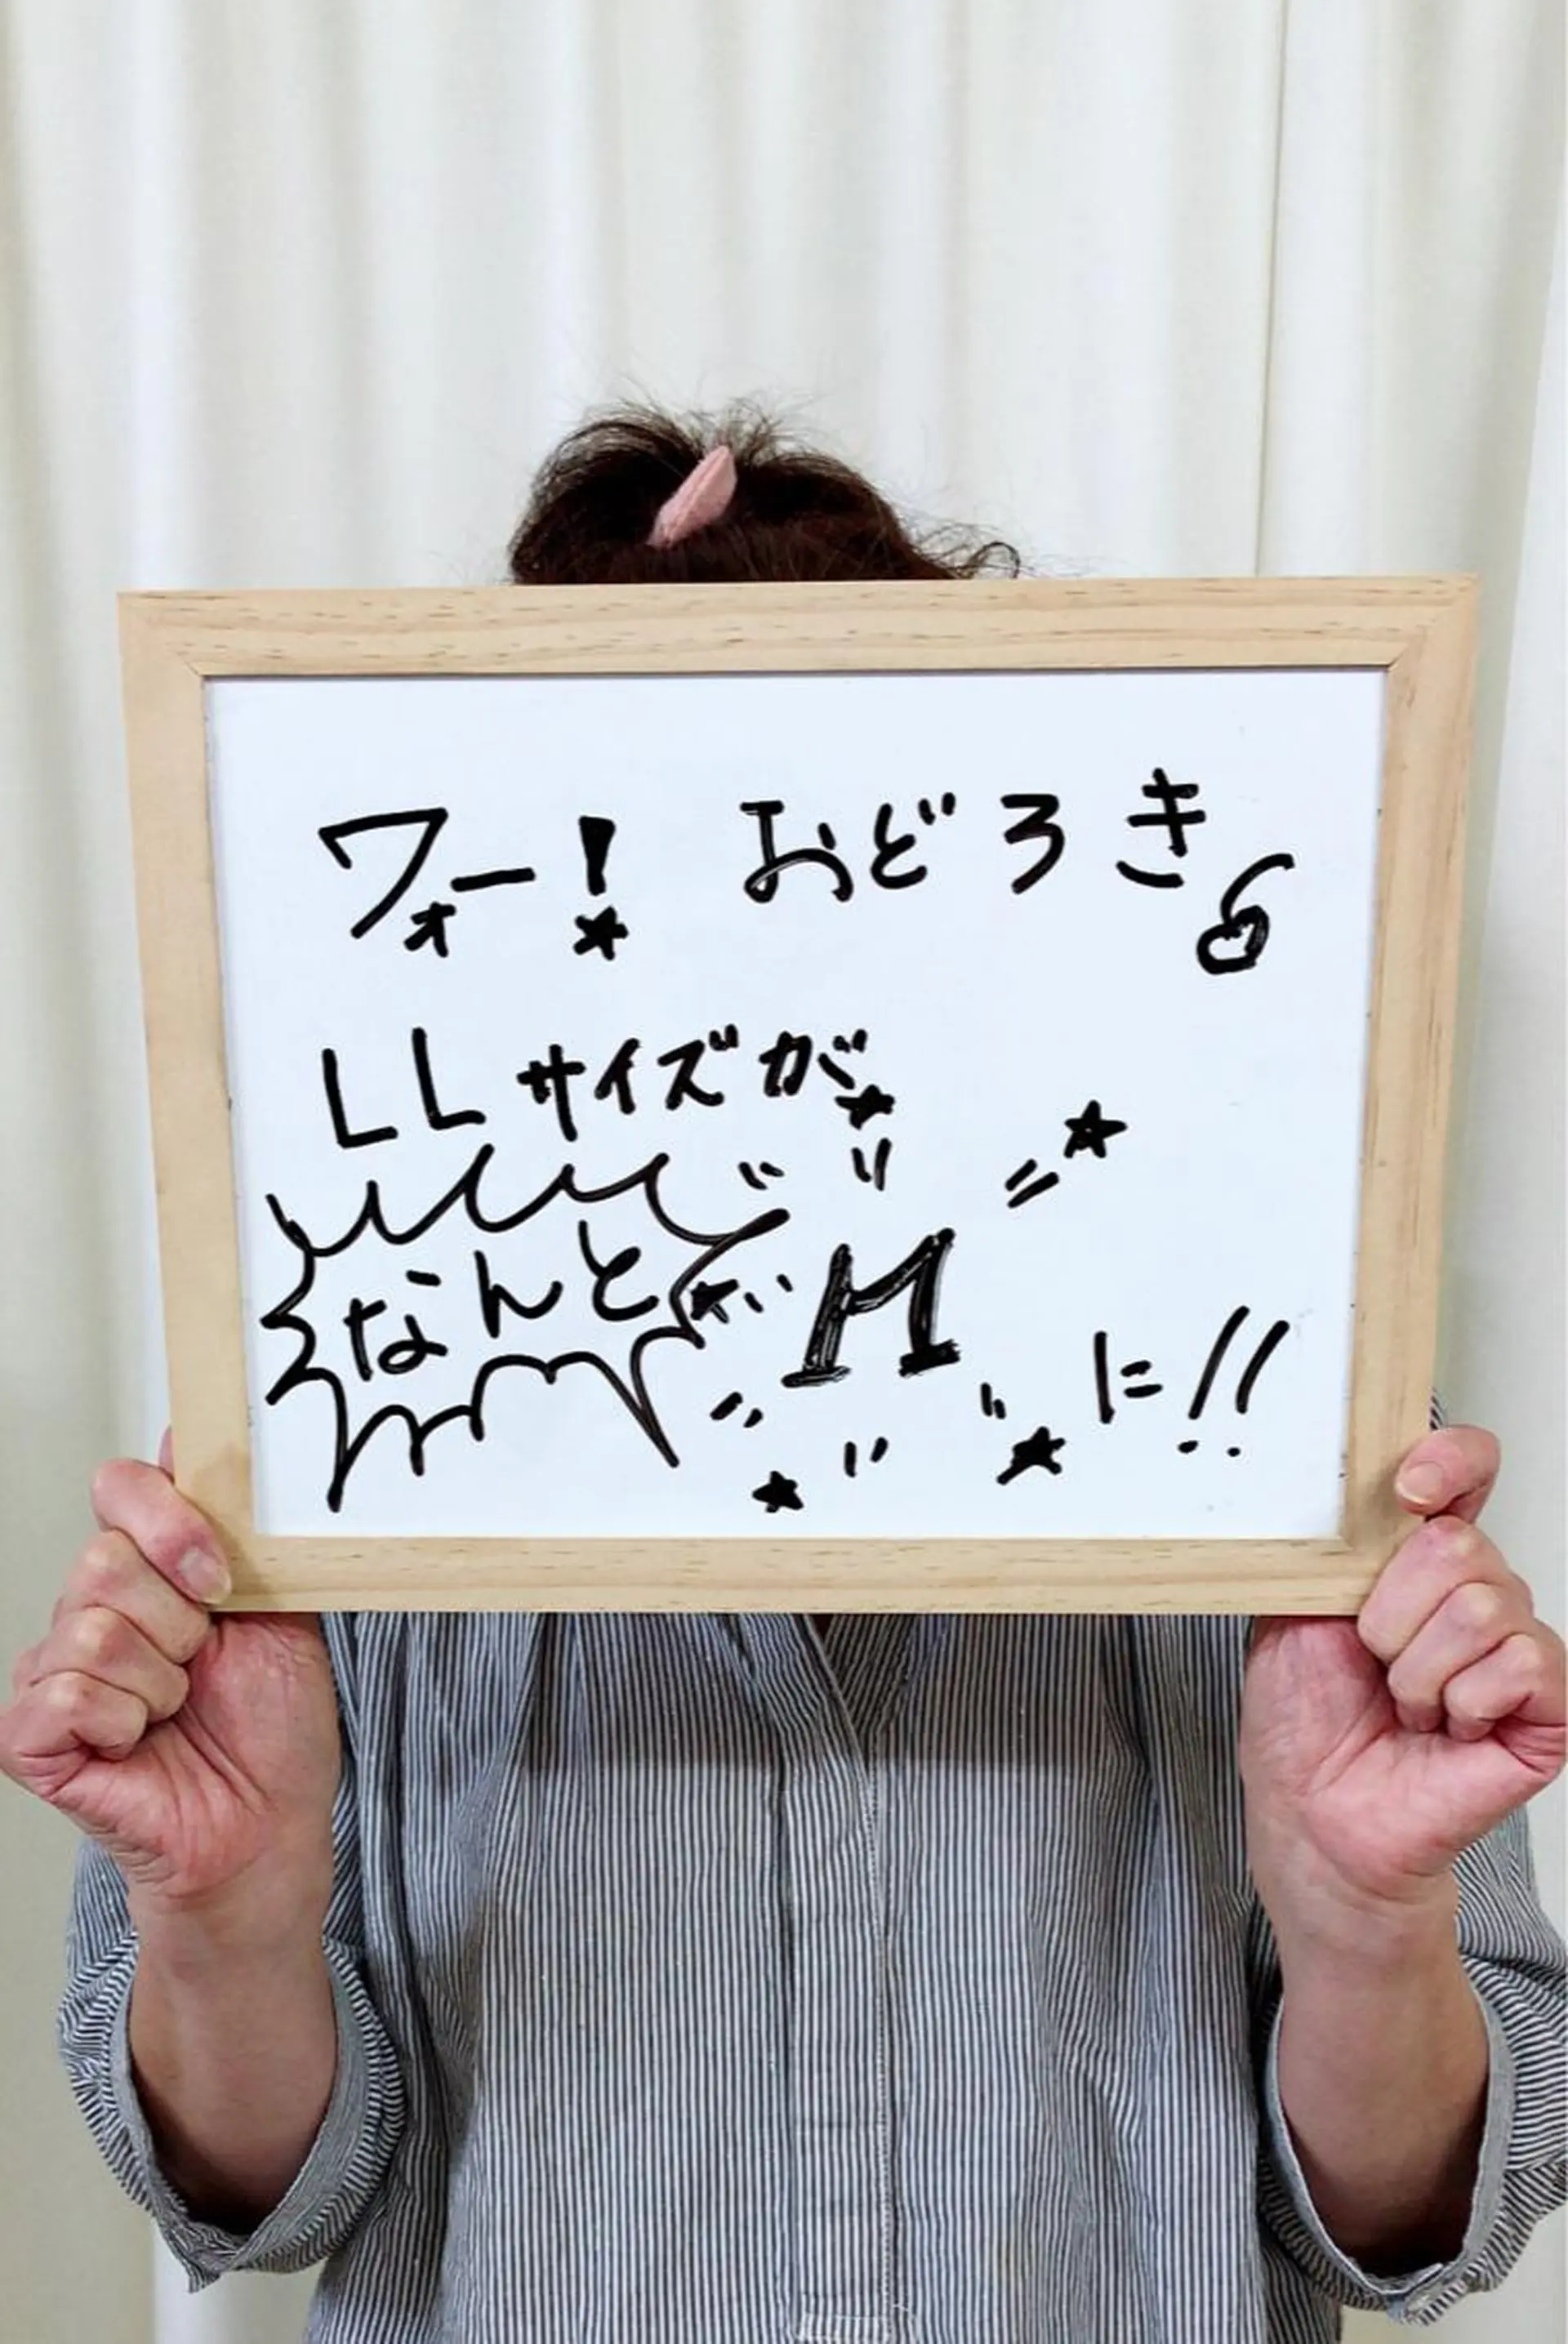 ウォー! おどろき
LLサイズが
なんと Mに!!